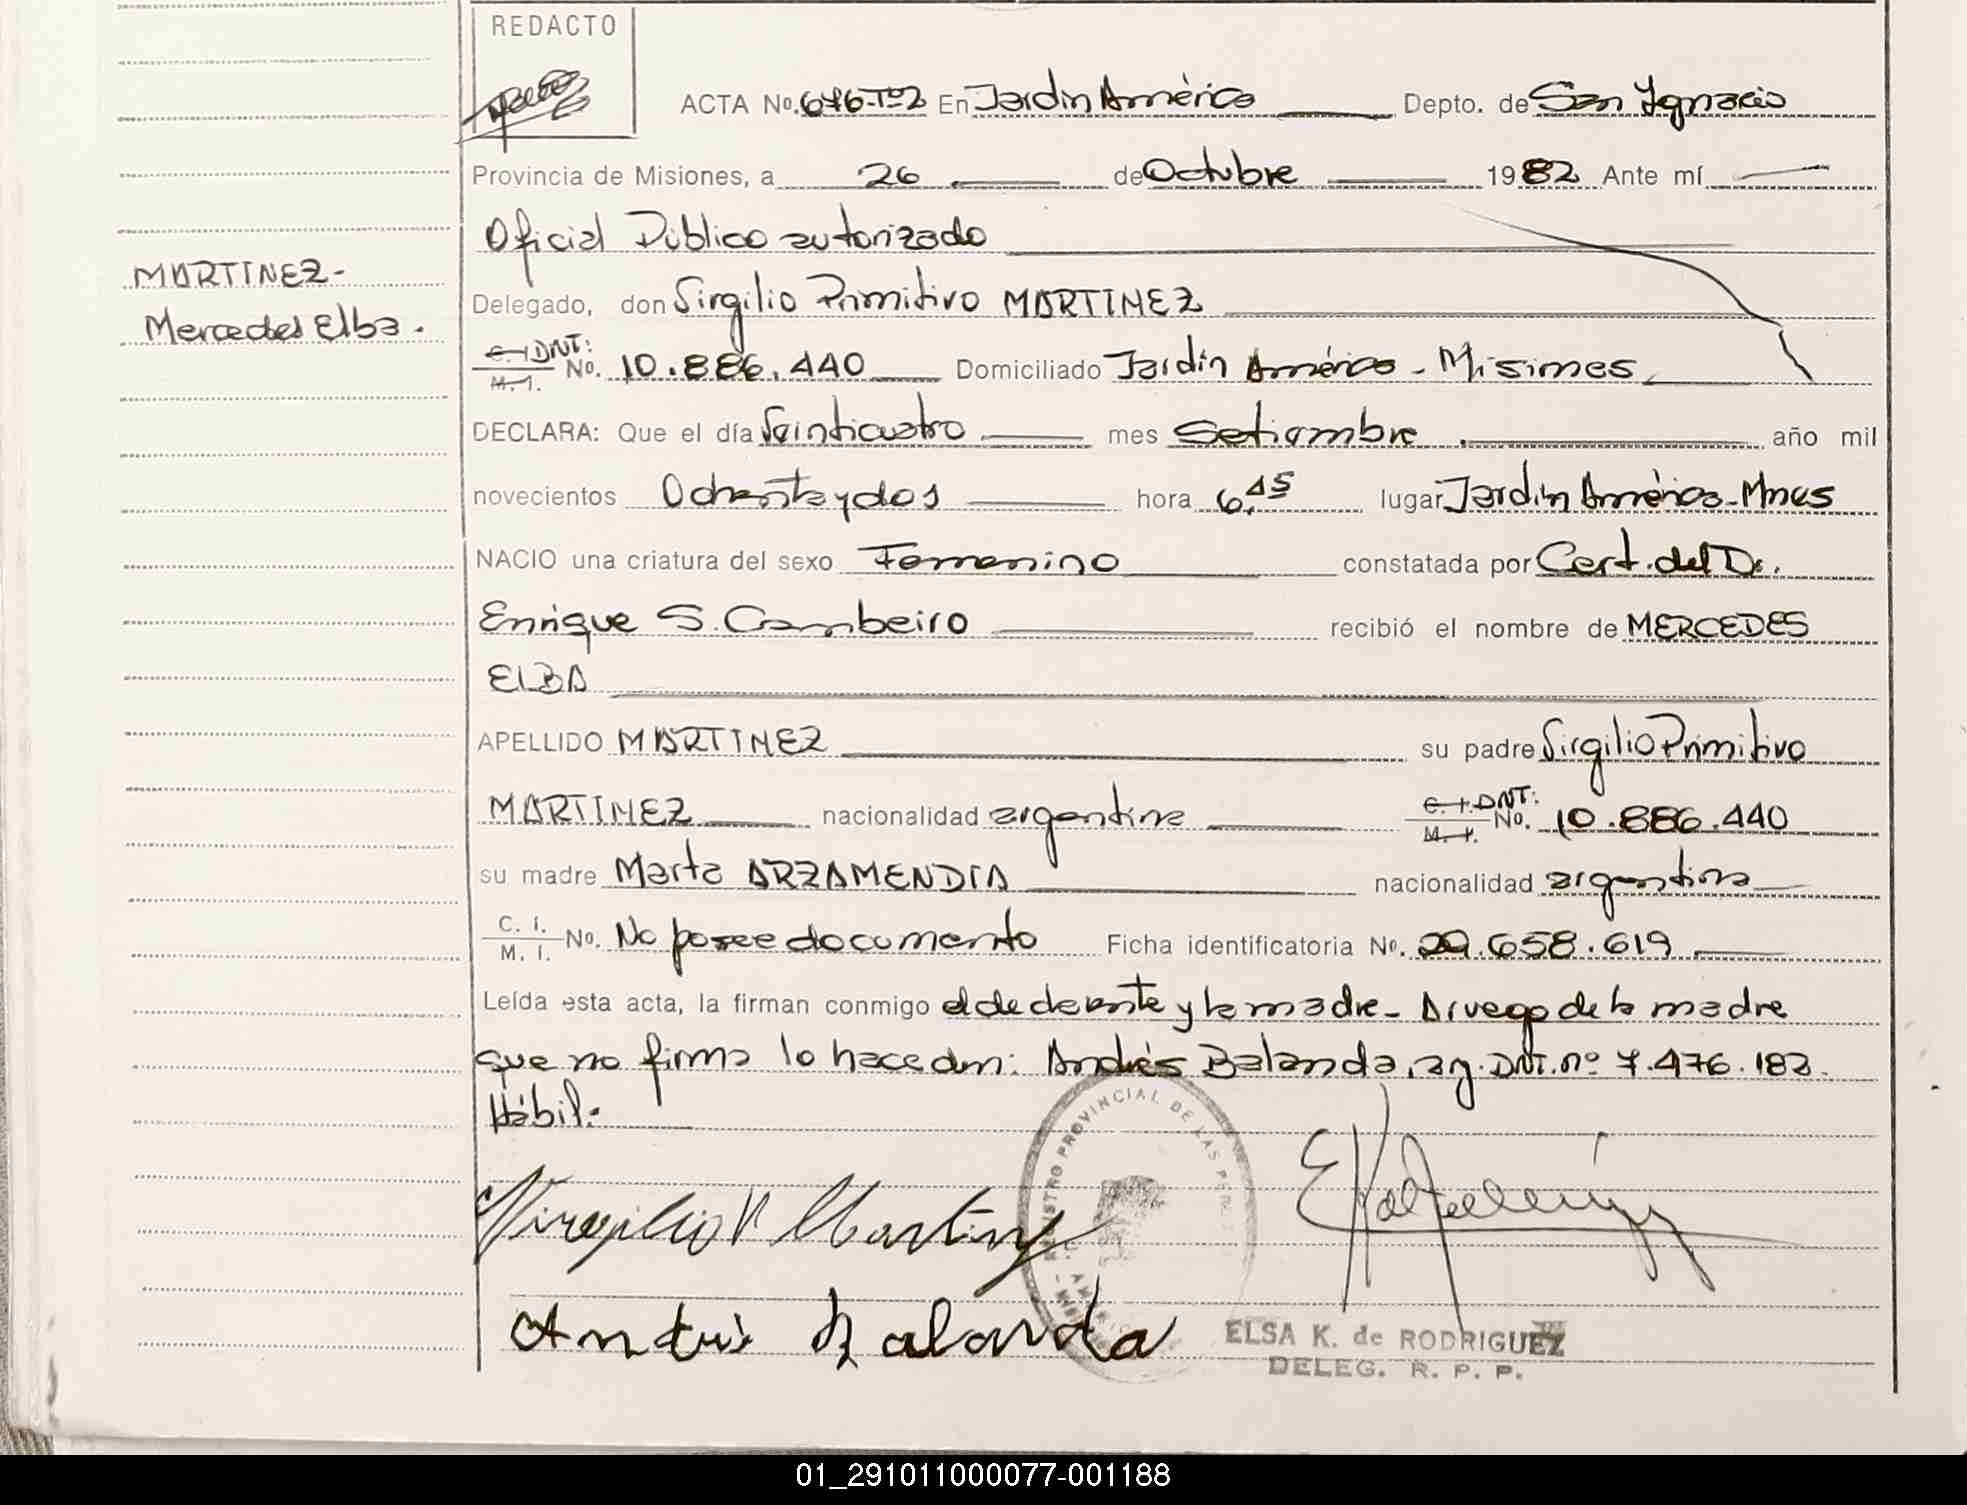 REDACTO
ACTA No. 676-Tº2 En Jardin América Depto. de San Ignacio
Provincia de Misiones, a 26 de Octubre 1982 Ante mí
Oficial Público autorizado
MARTINEZ-
Delegado, don Virgilio Primitivo MARTINEZ
Mercedes Elba.
C. I. DNI: M. I. No. 10.886.440 Domiciliado Jardín América - Misiones
DECLARA: Que el día Veinticuatro mes Setiembre año mil
novecientos Ochenta y dos hora 6,45 lugar Jardin América-Mnes
NACIO una criatura del sexo Femenino constatada por Cert. del Dr.
Enrique S. Cambeiro recibió el nombre de MERCEDES
ELBA
APELLIDO MARTINEZ su padre Virgilio Primitivo
MARTINEZ nacionalidad argentina C. I. DNI: M. I. No. 10.886.440
su madre Marta ARZAMENDIA nacionalidad argentina
C. I. M. I. No. No posee documento Ficha identificatoria No. 29.658.619
Leída esta acta, la firman conmigo el declarante y la madre- A ruego de la madre
que no firma lo hace don: Andrés Balanda, arg. DNI. nº 7.476.182.
Hábil:
REGISTRO PROVINCIAL DE LAS PER
Virgilio P Martinez
Andrés Balanda
ELSA K. de RODRIGUEZ
DELEG. R. P. P.
01_291011000077-001188